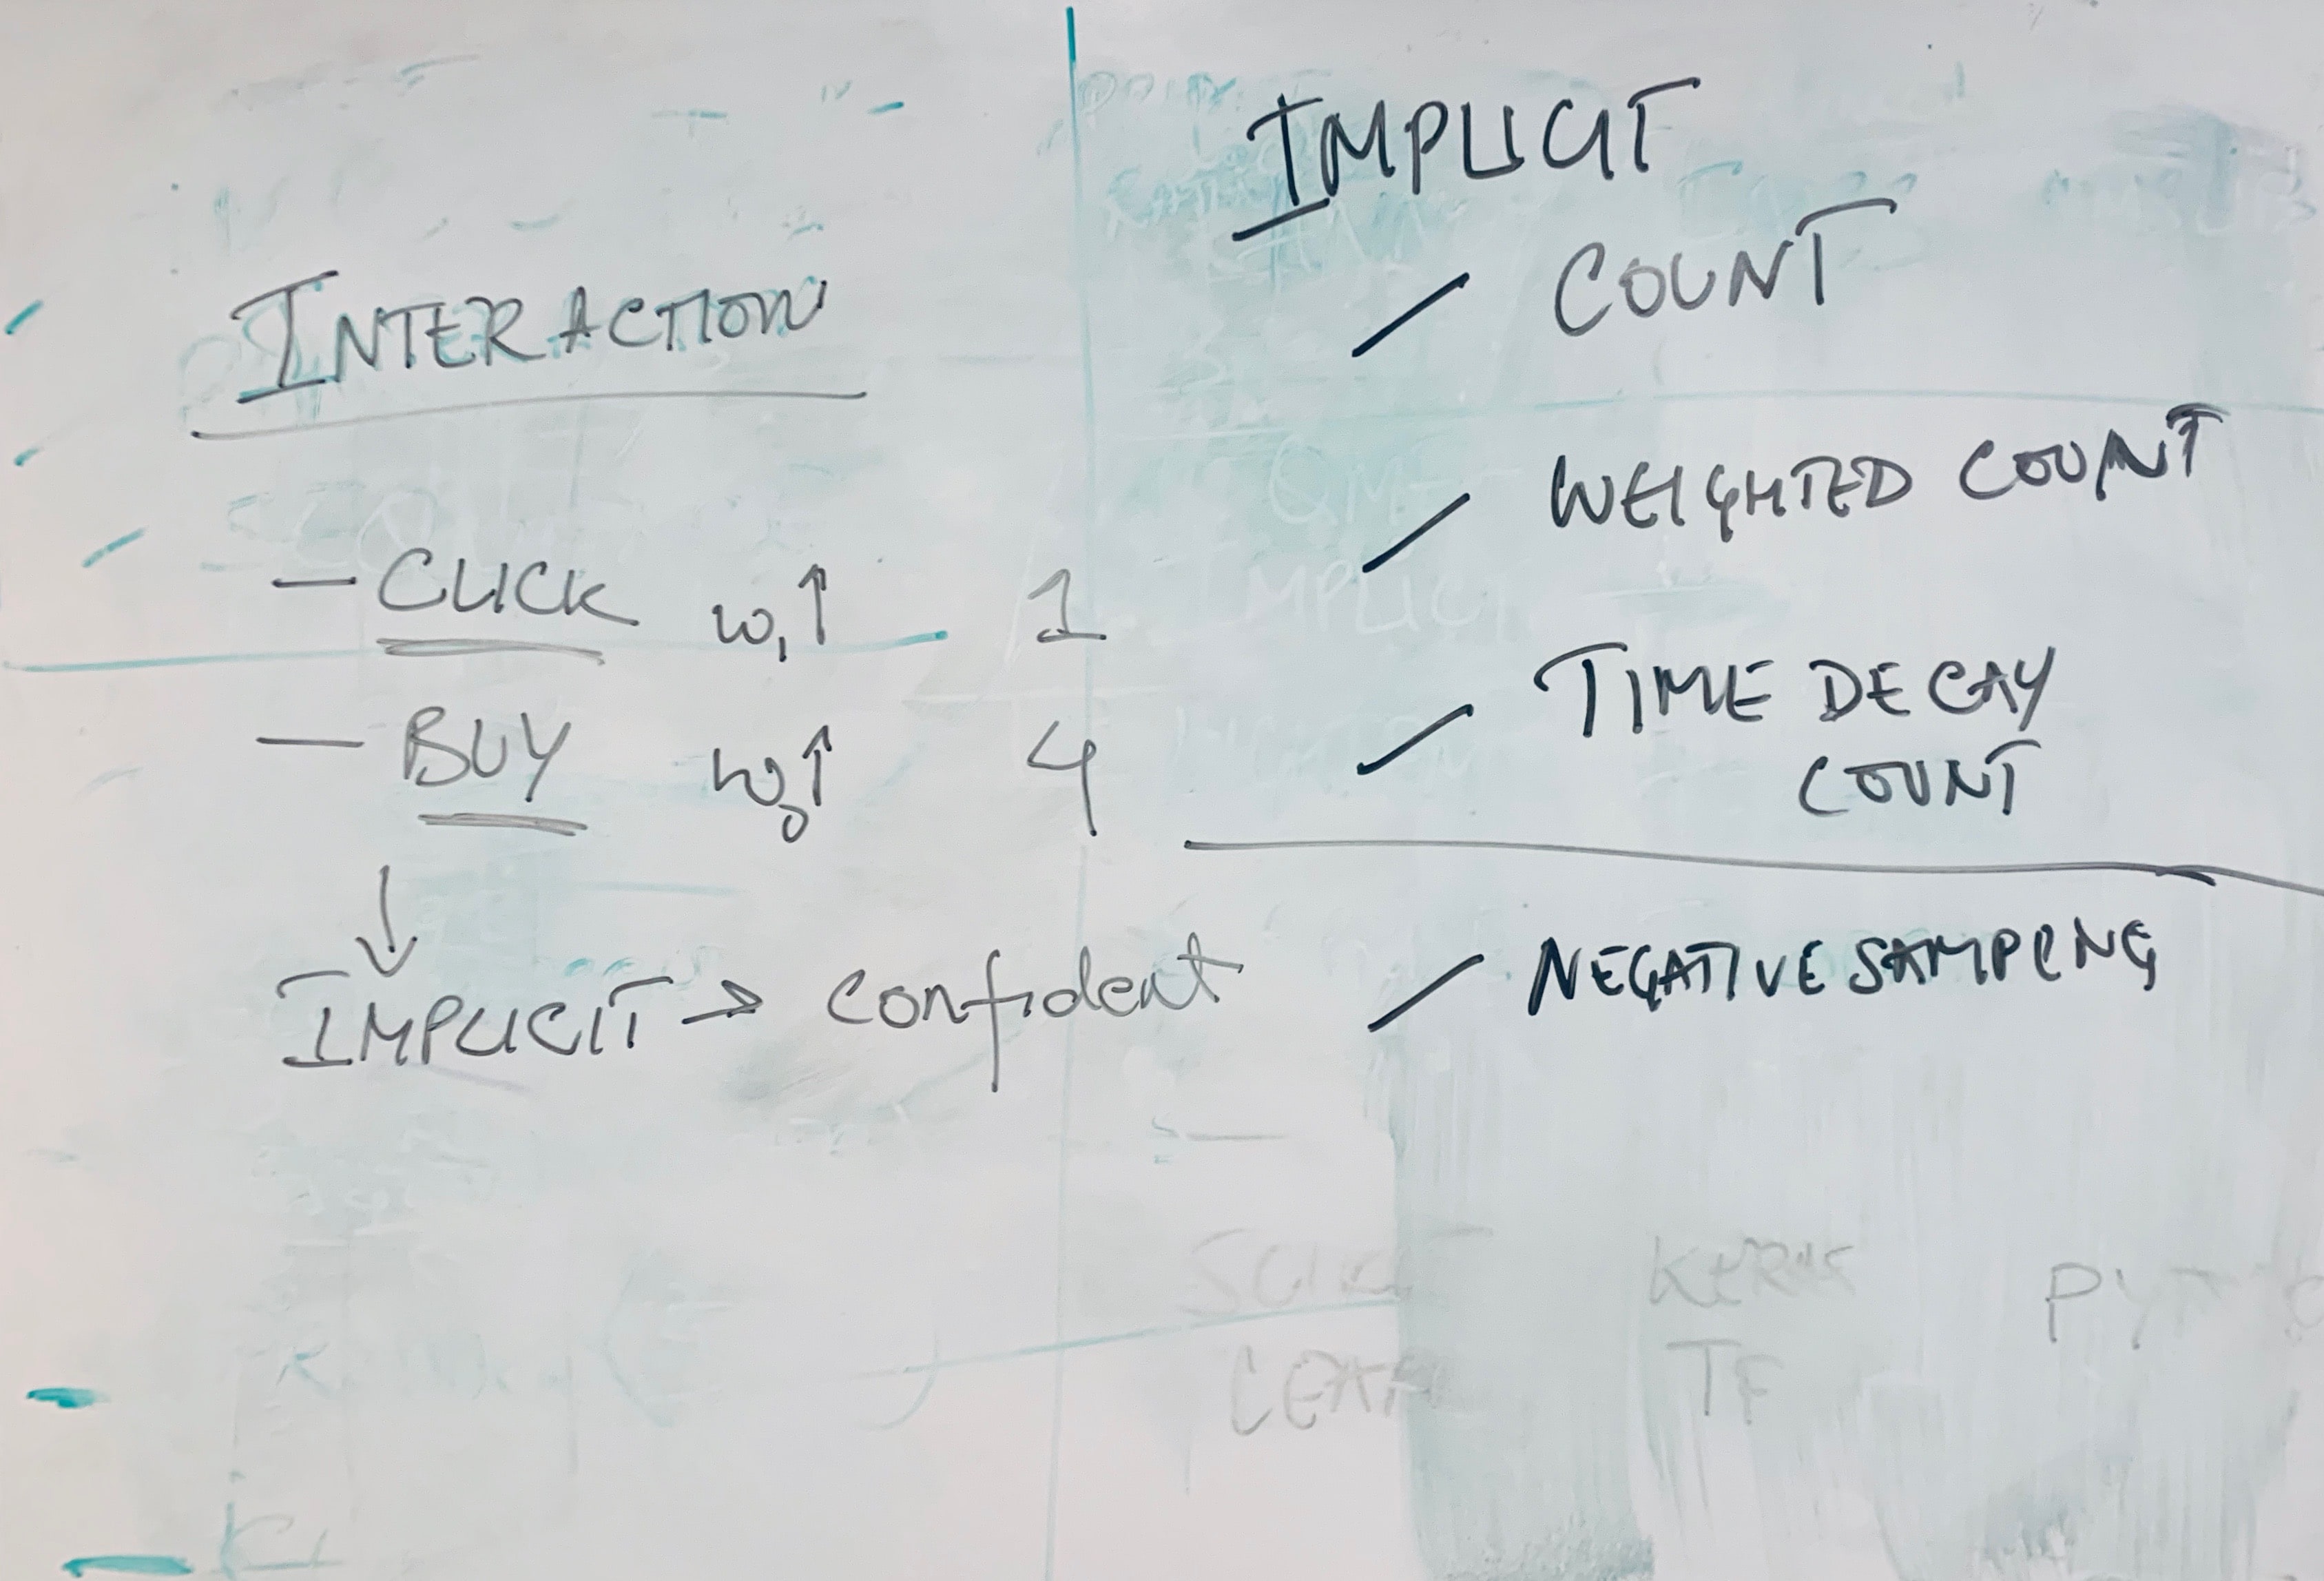 INTERACTION
- CLICK w₁↑ 1
- BUY w₂↑ 4
↓
IMPLICIT → confident
IMPLICIT
- COUNT
- WEIGHTED COUNT
- TIME DECAY
COUNT
- NEGATIVE SAMPLING
KERAS
TF